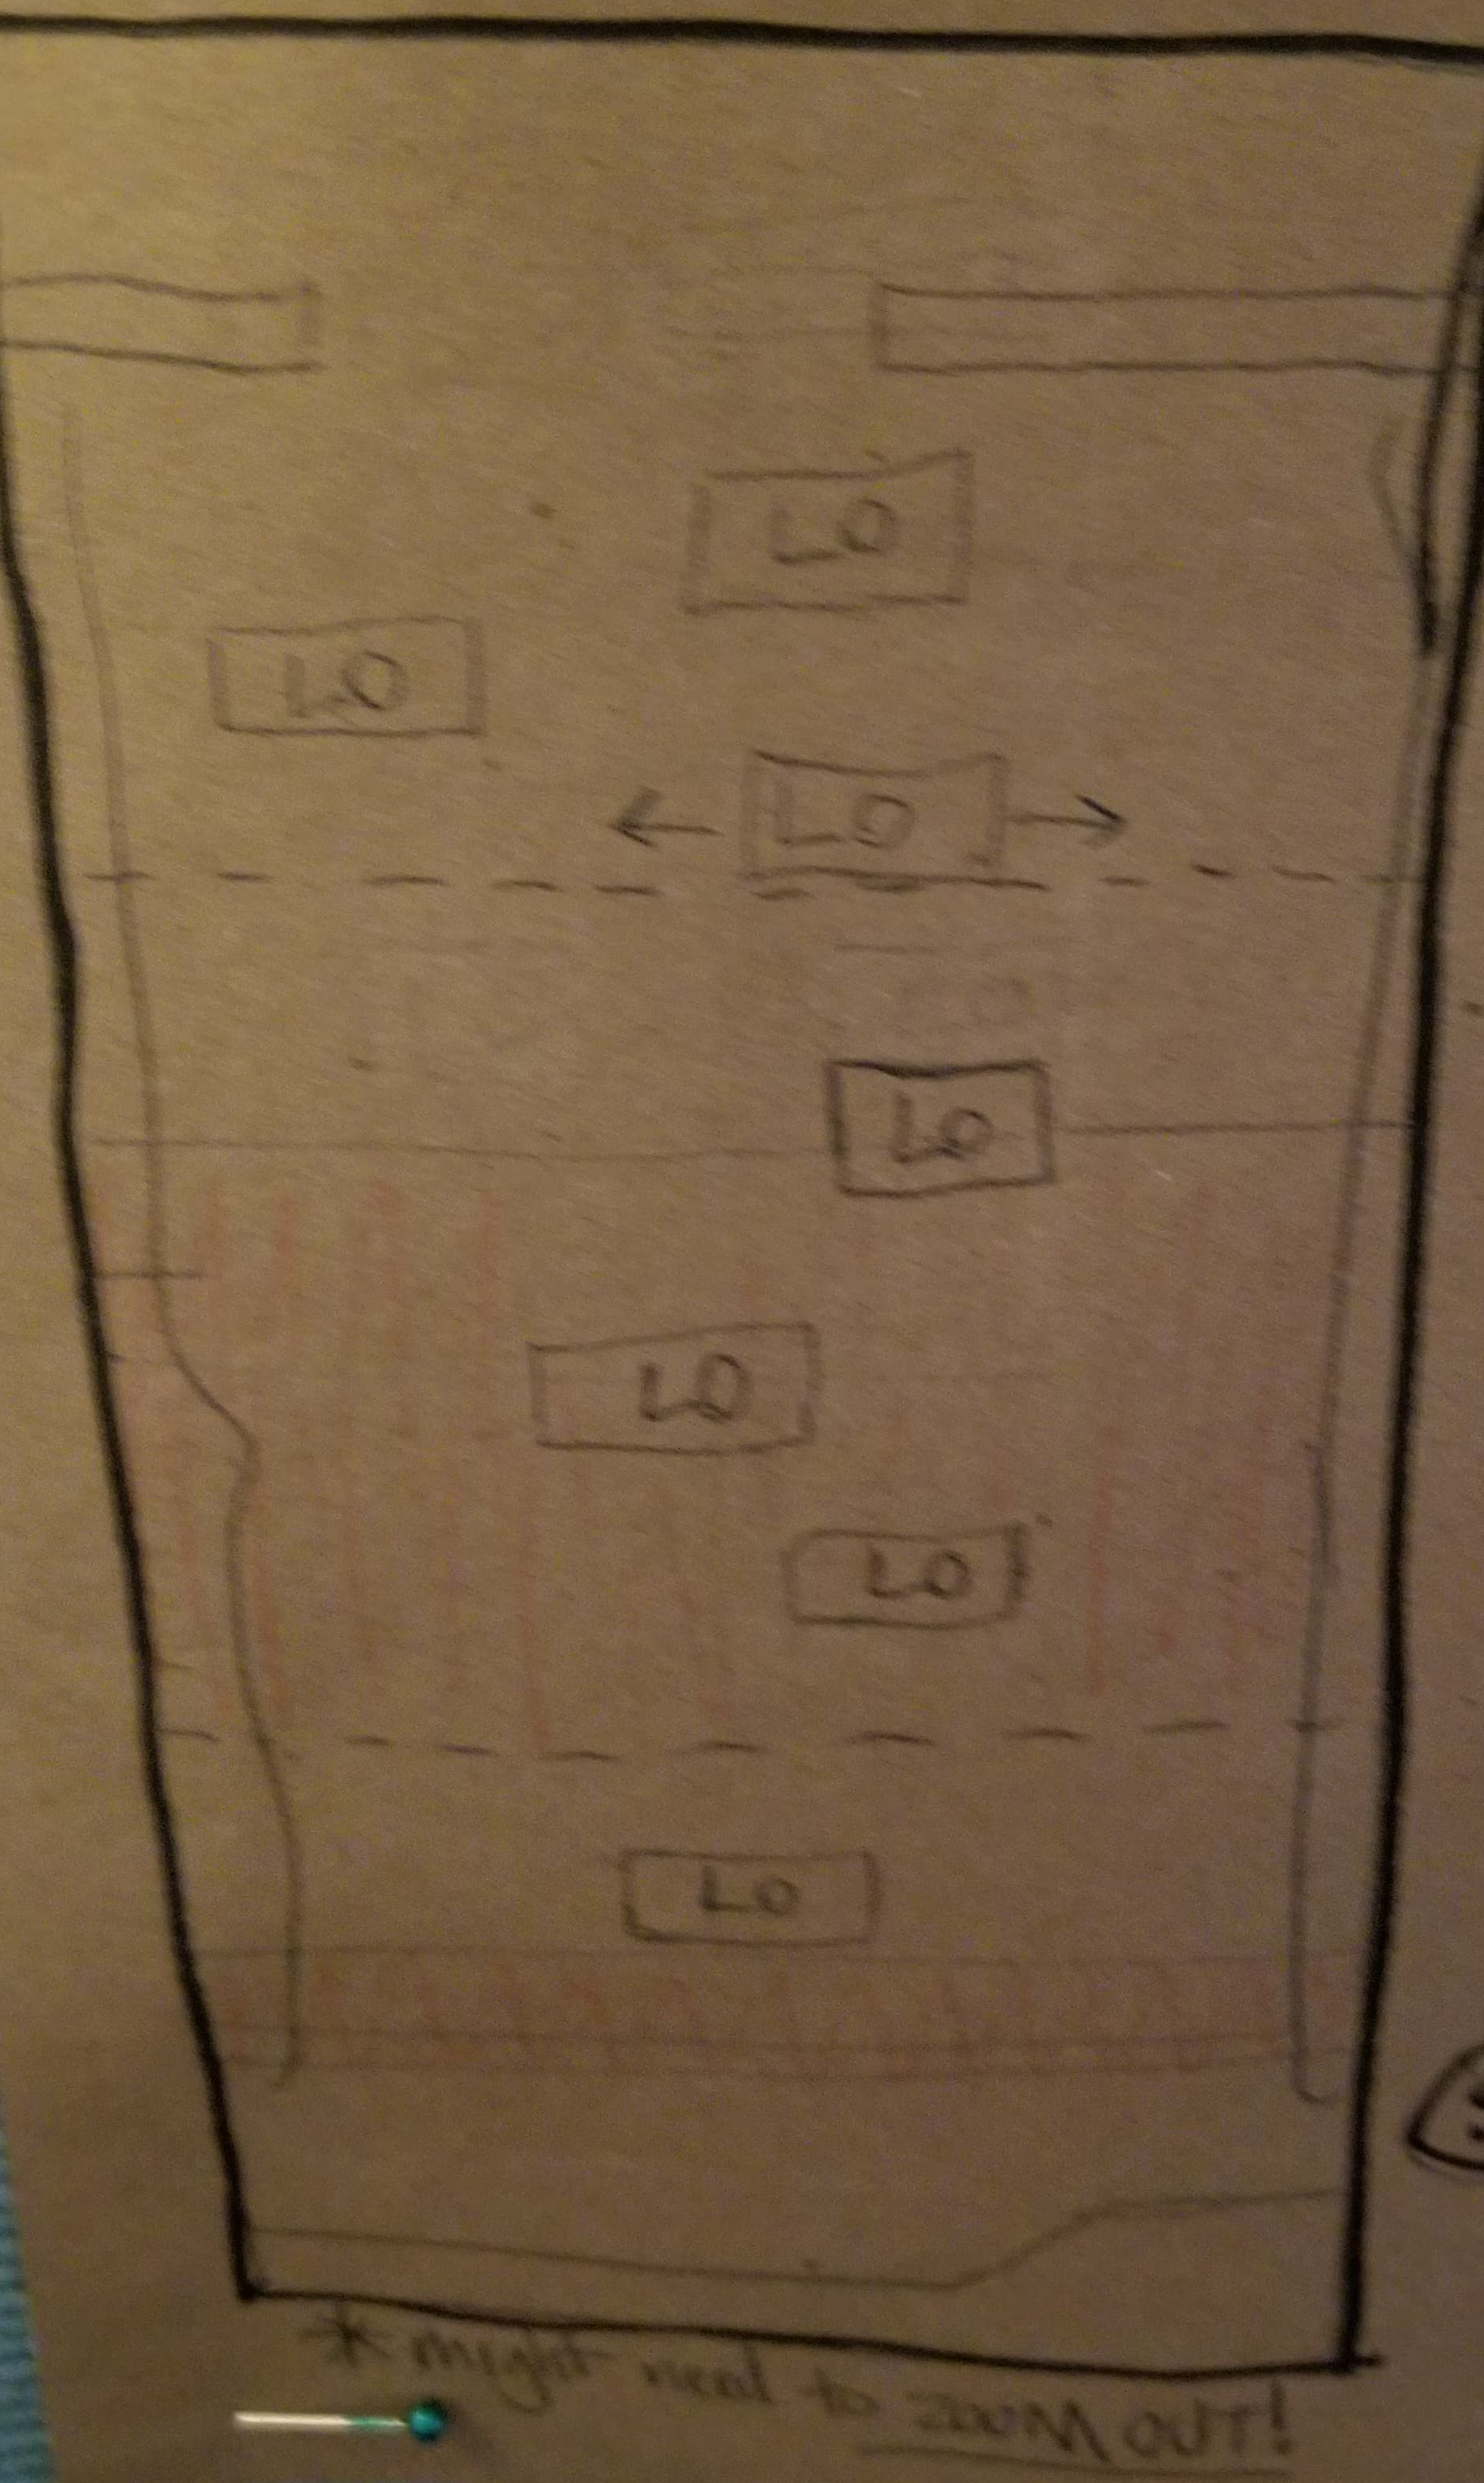 LO
LO
LO
LO
LO
LO
LO
* might need to ZOOM OUT!